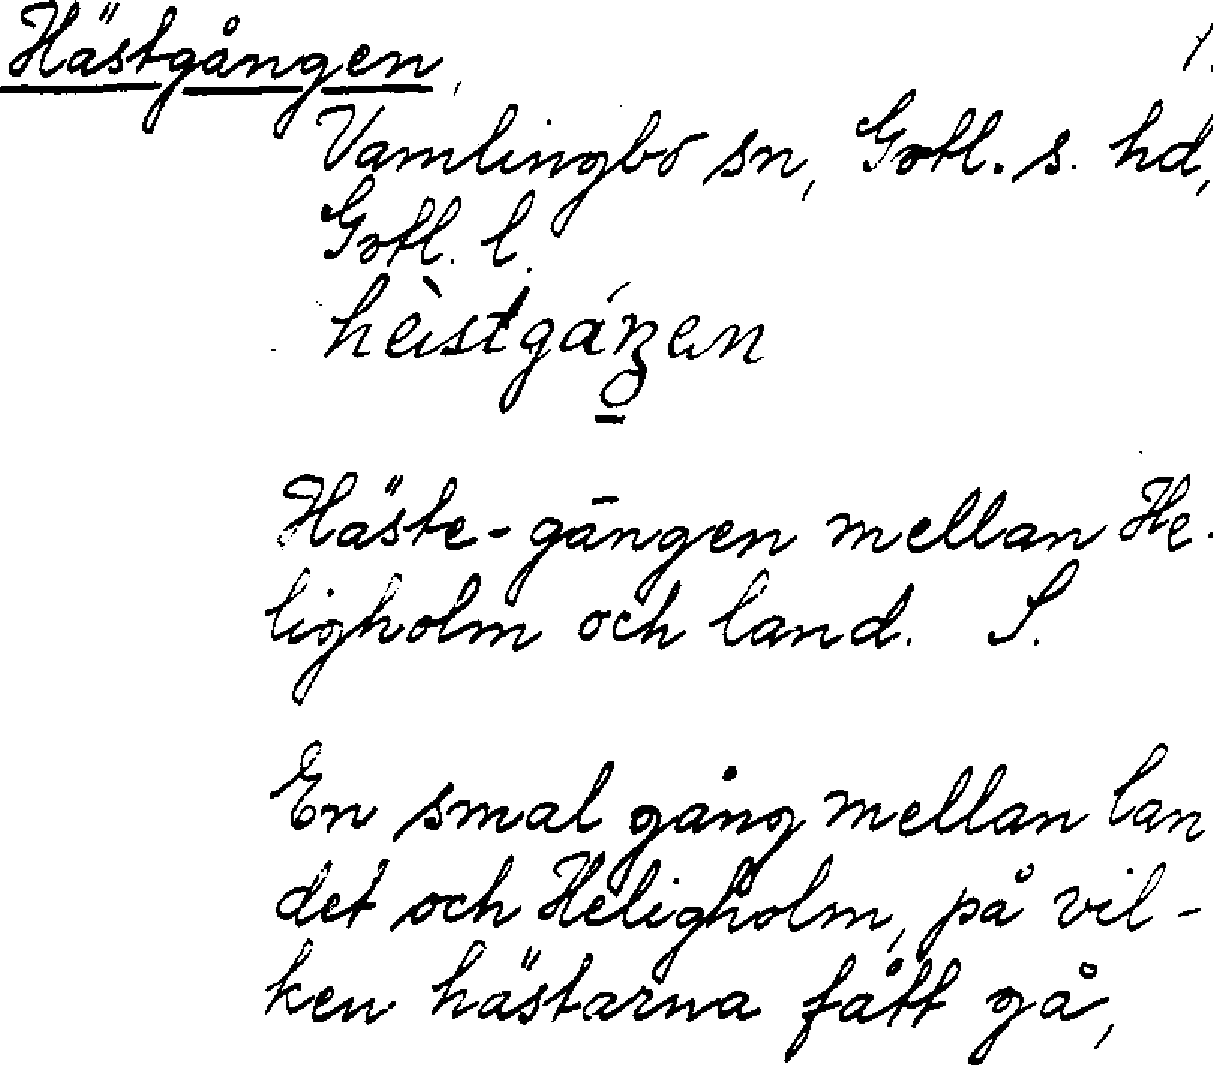 Hästgången, 1.
Vamlingbo sn, Gotl. s. hd,
Gotl. l.
Häste-gāngen mellan He-
ligholm och land. S.
En smal gång mellan lan
det och Heligholm, på vil-
ken hästarna fått gå,